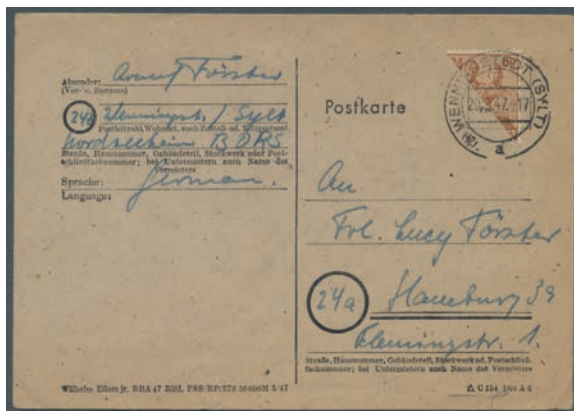 Absender:
(Vor- u. Zuname)
Förster
24b Wenningst. / Sylt
Postleitzahl, Wohnort, auch Zustell- od. Leitpostamt
Nordseeheim BÖRS
Straße, Hausnummer, Gebäudeteil, Stockwerk oder Post-
schließfachnummer; bei Untermietern auch Name des
Vermieters
Sprache: German.
Language:
Wilhelm Eilers jr.
Postkarte
WENNINGSTEDT (SYLT)
47.-17
a
An
Frl. Lucy Förster
24a Hamburg 39
Flemingstr. 1.
Straße, Hausnummer, Gebäudeteil, Stockwerk od. Postschließ-
fachnummer; bei Untermietern auch Name des Vermieters
C 154 DIN A 6